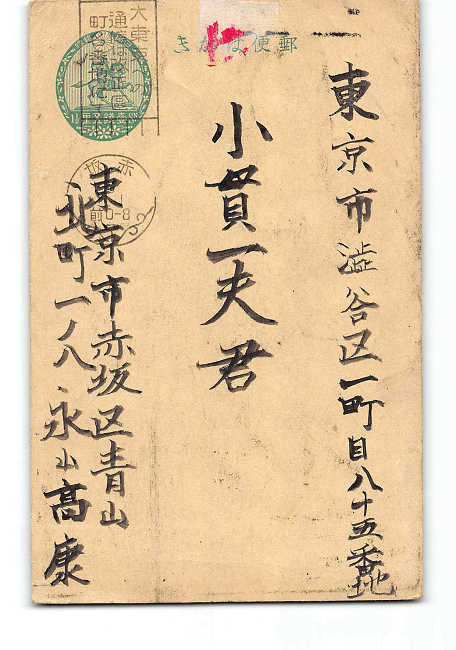 郵便はがき
東京市澁谷区一町目八十五番地
小貫一夫君
東京市赤坂区青山
北町一ノ八、永山高康
大東京
町名番地
赤坂